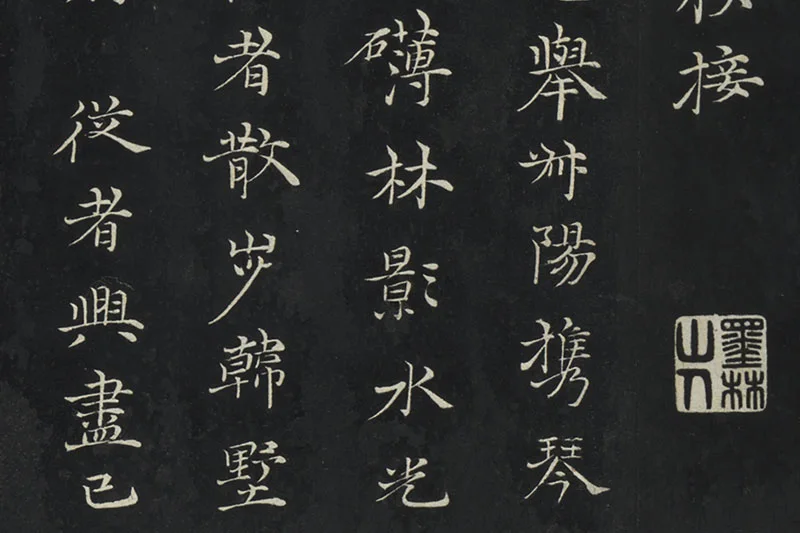 接
墨林
山人
舉陽携琴
礴林影水光
者散步韓墅
從者興盡已